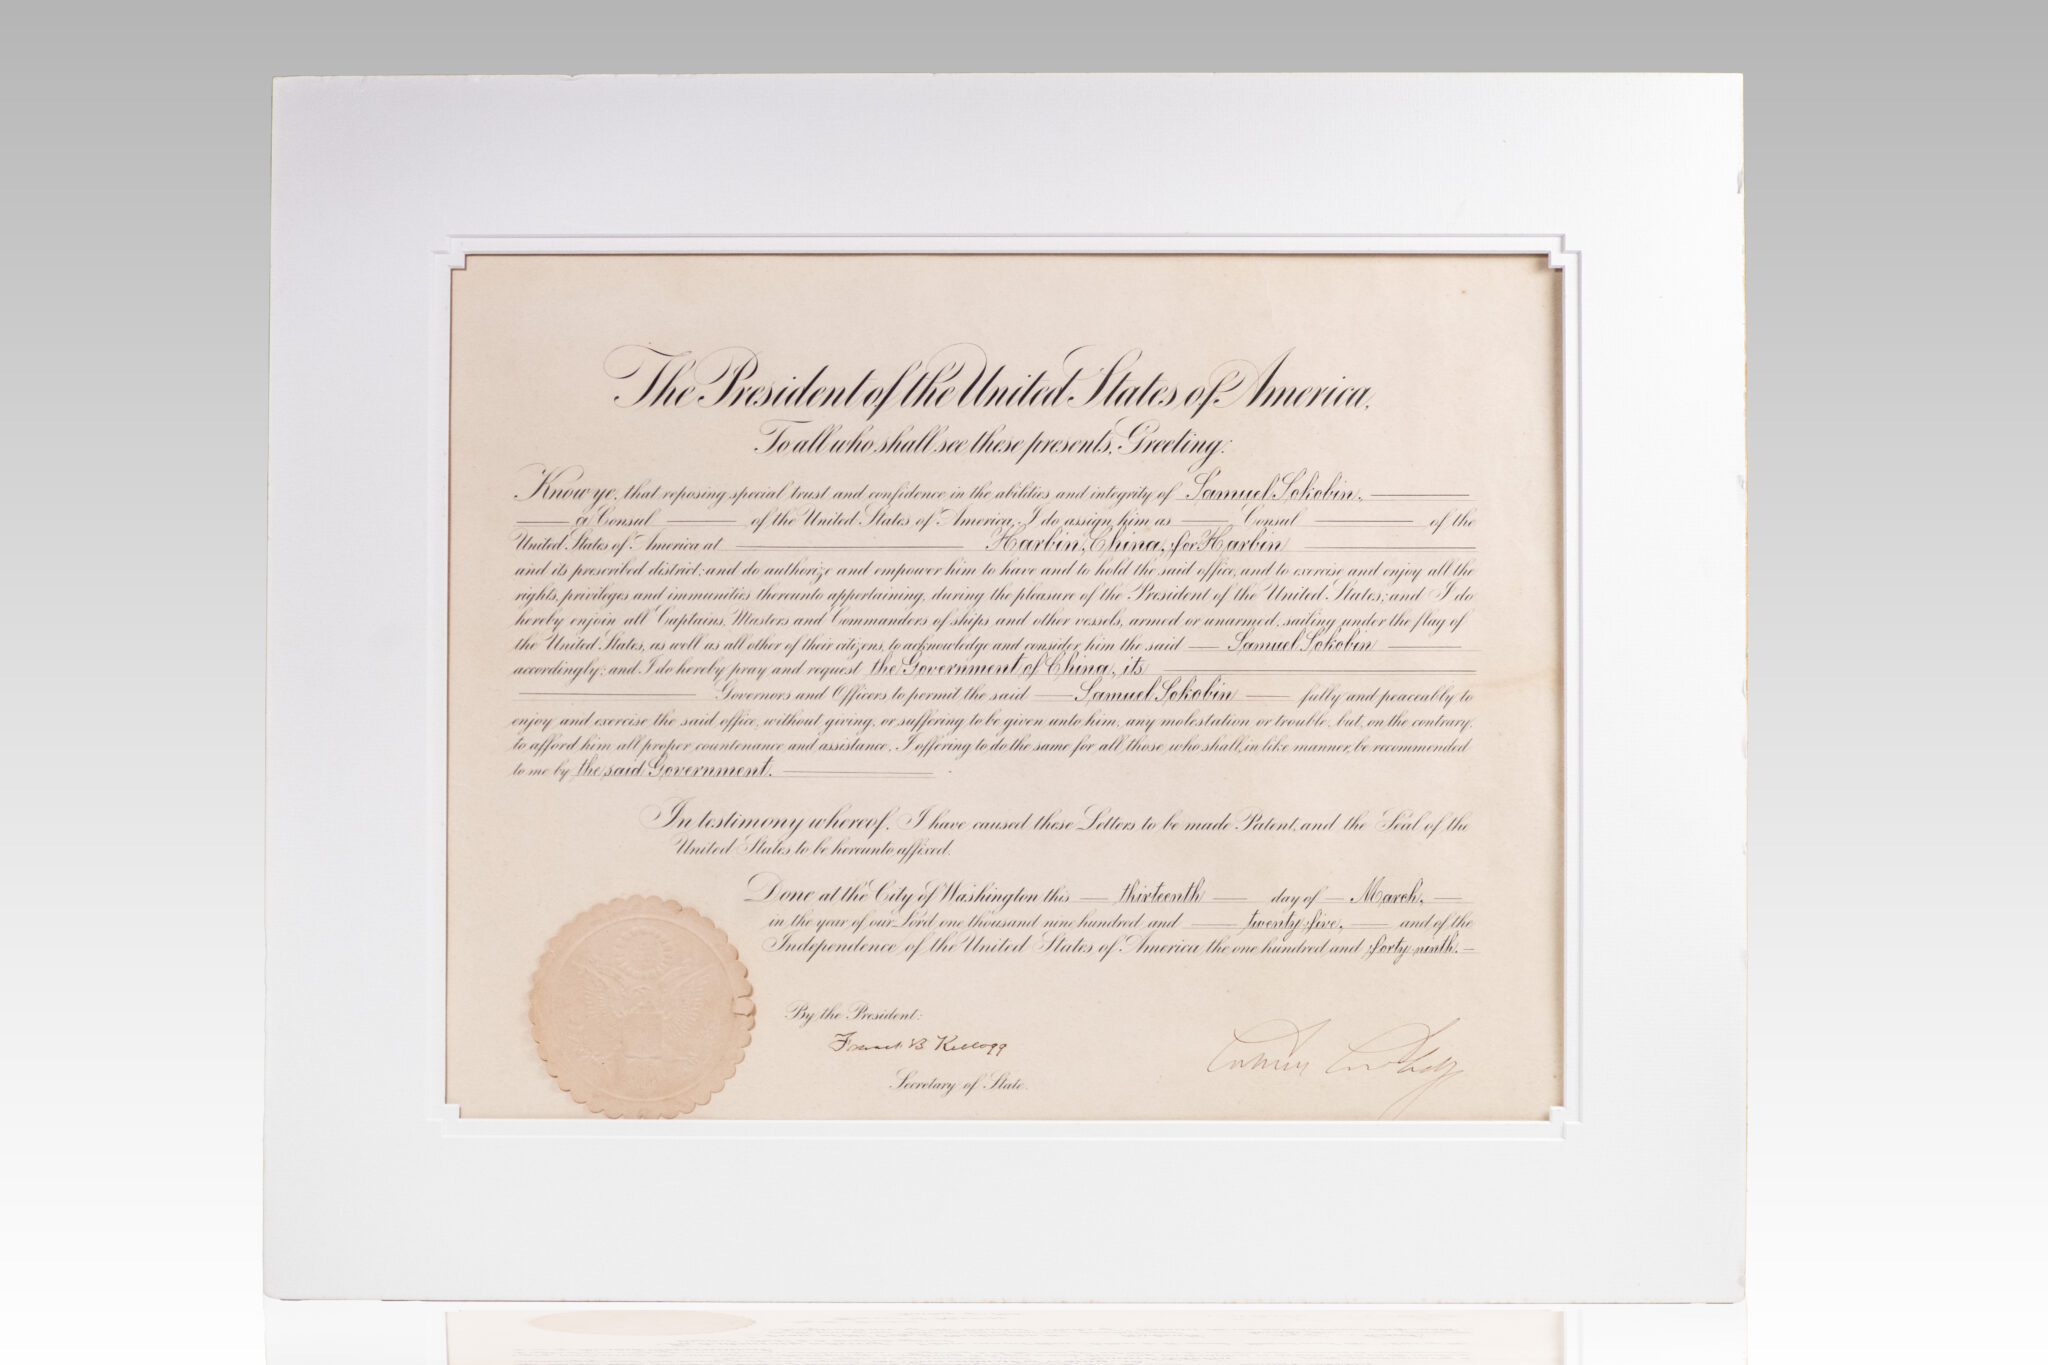 The President of the United States of America,
To all who shall see these presents, Greeting:
Know ye, that reposing special trust and confidence in the abilities and integrity of Samuel Sokobin,
a Consul of the United States of America, I do assign him as Consul of the
United States of America at Harbin, China, for Harbin
and its prescribed district; and do authorize and empower him to have and to hold the said office, and to exercise and enjoy all the
rights, privileges and immunities thereunto appertaining, during the pleasure of the President of the United States; and I do
hereby enjoin all Captains, Masters and Commanders of ships and other vessels, armed or unarmed, sailing under the flag of
the United States, as well as all other of their citizens, to acknowledge and consider him the said Samuel Sokobin
accordingly; and I do hereby pray and request the Government of China, its
Governors and Officers to permit the said Samuel Sokobin fully and peaceably to
enjoy and exercise the said office, without giving, or suffering to be given unto him, any molestation or trouble, but, on the contrary,
to afford him all proper countenance and assistance, I offering to do the same for all those, who shall, in like manner, be recommended
to me by the said Government.
In testimony whereof, I have caused these Letters to be made Patent, and the Seal of the
United States to be hereunto affixed.
Done at the City of Washington this thirteenth day of March,
in the year of our Lord one thousand nine hundred and twenty-five, and of the
Independence of the United States of America the one hundred and forty-ninth.
By the President:
Frank B Kellogg
Calvin Coolidge
Secretary of State.